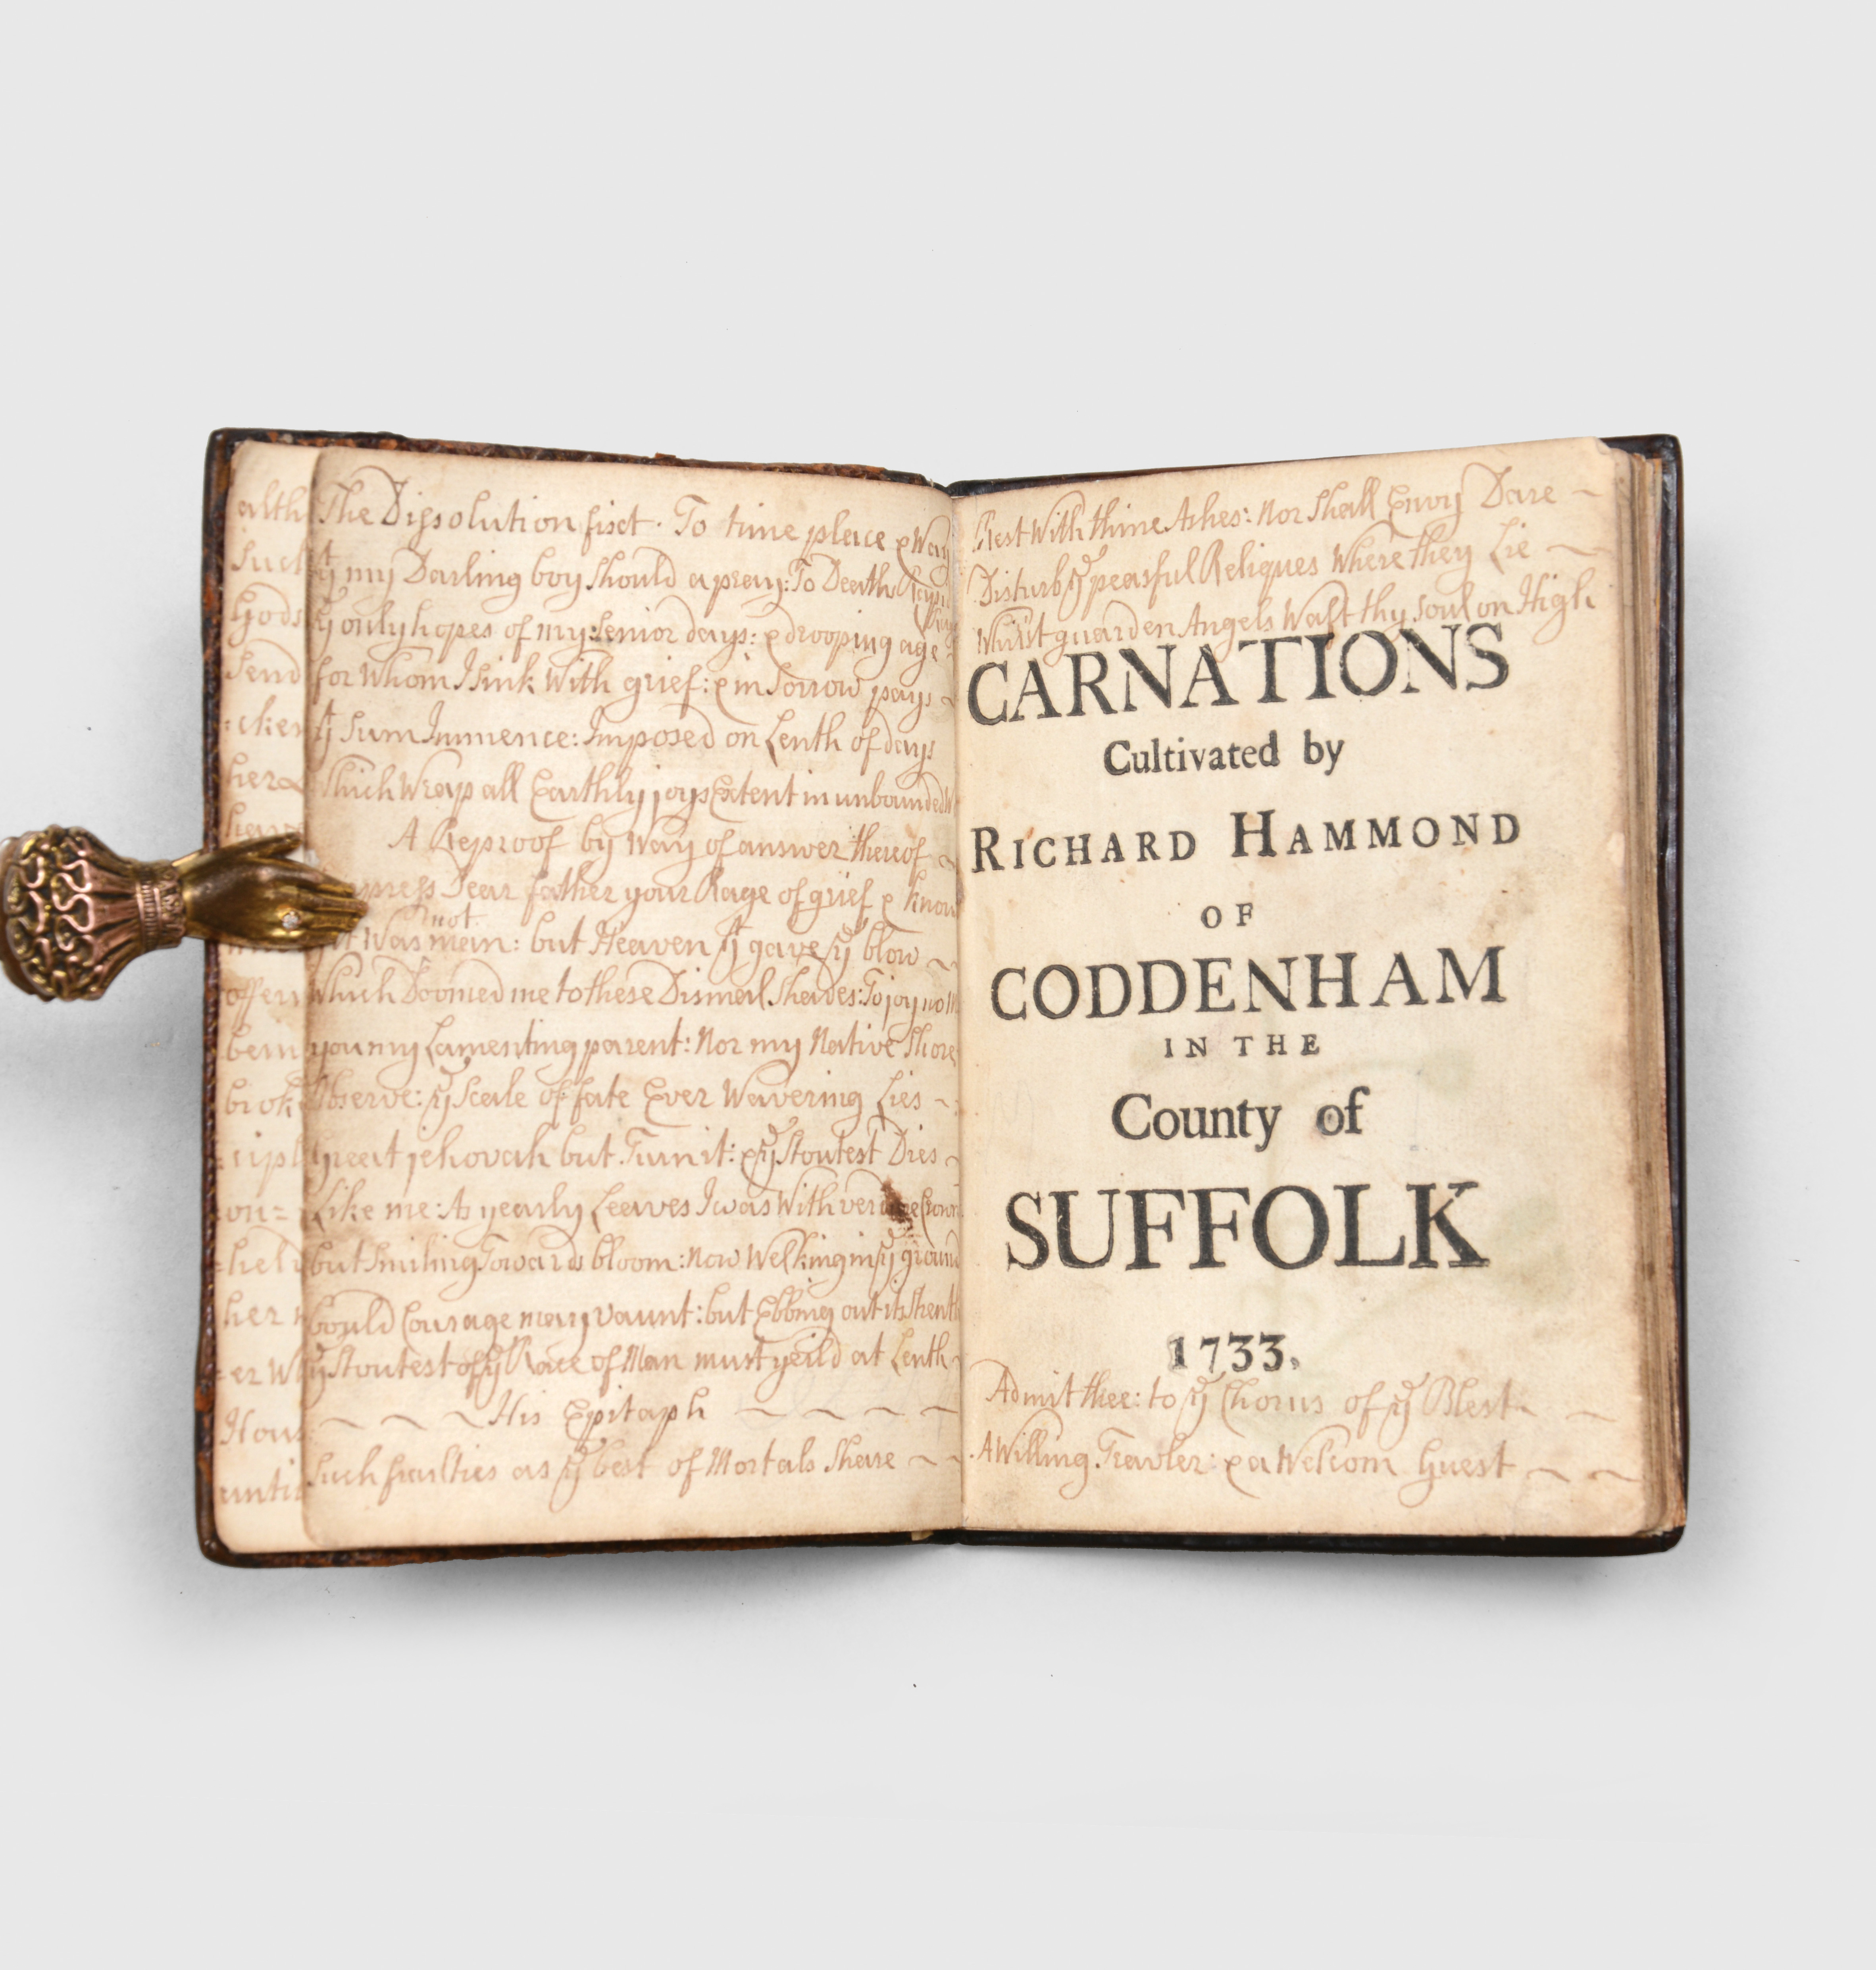 The Dissolution fixt. To time place & Way
yt my Darling boy should a pray: To Death
ye only hopes of my senior days: & drooping age
for Whom I sink With grief: & in sorrow pays
yt sum Immence: Imposed on Lenth of days
Which Wrap all Earthly joys Extent in unbounded
A Reproof by Way of answer thereof
Dear father your Rage of grief & know
it Was not man: but Heaven yt gave ye blow
Which Doomed me to these Dismal Shades: To joy no
you my Lamenting parent: Nor my Native Shore
Observe: ye Scale of fate Ever Wavering Lies
Great jehovah but Turn it: & ye Stoutest Dies
Like me: As yearly Leaves I was With verdure Crown
but Smiling Towards bloom: now Welking in ye ground
bould Courage may vaunt: but Ebbing out its Strenth
ye Stoutest of ye Race of Man must yeild at Lenth
His Epitaph
Such frailties as ye best of Mortals Share
Rest With thine Ashes: Nor Shall Envy Dare
Disturb ye peasful Reliques Where they Lie
Whilst guarden Angels Waft thy Soul on High
CARNATIONS
Cultivated by
RICHARD HAMMOND
OF
CODDENHAM
IN THE
County of
SUFFOLK
1733.
Admit thee: to ye Chorus of ye Blest
A Willing Travler: & a Welcom Guest